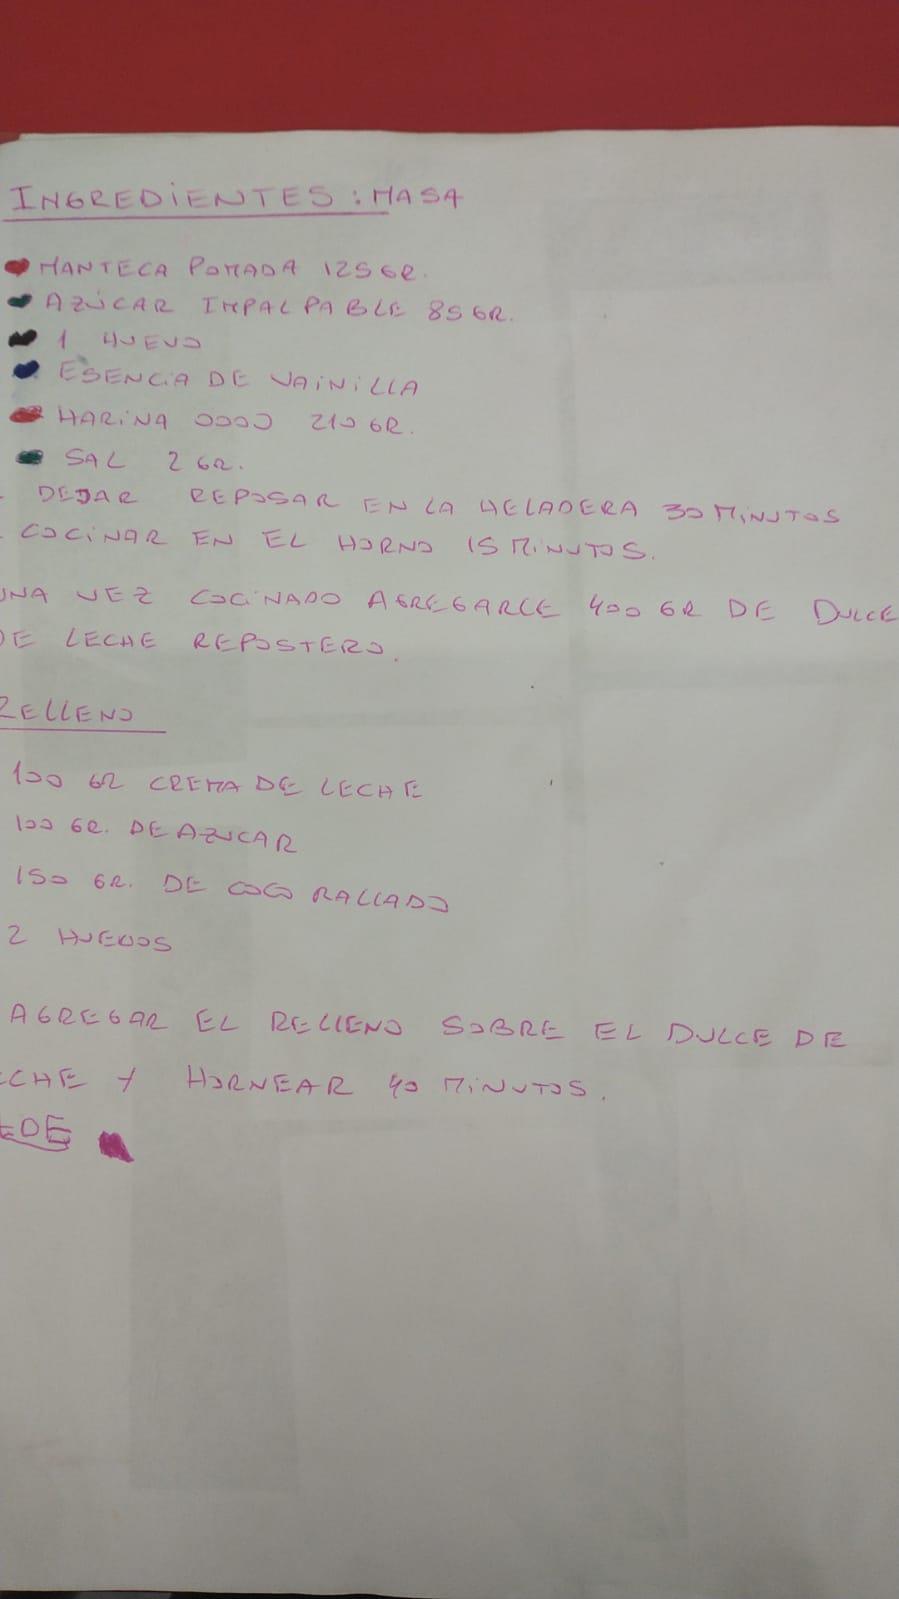 INGREDIENTES: MASA
MANTECA POMADA 125 GR.
AZÚCAR IMPALPABLE 85 GR.
1 HUEVO
ESENCIA DE VAINILLA
HARINA 0000 210 GR.
SAL 2 GR.
- DEJAR REPOSAR EN LA HELADERA 30 MINUTOS
- COCINAR EN EL HORNO 15 MINUTOS.
UNA VEZ COCINADO AGREGARCE 400 GR DE DULCE
DE LECHE REPOSTERO.
RELLENO
100 GR CREMA DE LECHE
100 GR. DE AZUCAR
150 GR. DE COCO RALLADO
2 HUEVOS
AGREGAR EL RELLENO SOBRE EL DULCE DE
CHE Y HORNEAR 40 MINUTOS.